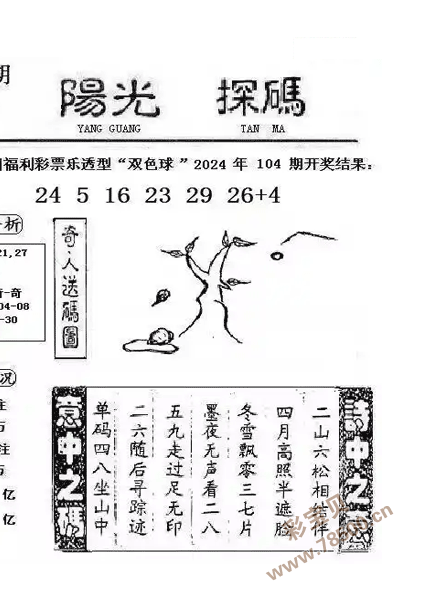 期
陽光 探碼
YANG GUANG TAN MA
福利彩票乐透型“双色球”2024年104期开奖结果:
24 5 16 23 29 26+4
析
21,27
奇
04-08
-30
奇人送碼圖
况
注
万
注
万
亿
亿
詩中之
二山六松相结伴
四月高照半遮脸
冬雪飘零三七片
墨夜无声看二八
五九走过足无印
二六随后寻踪迹
单码四八坐山中
意中之
彩宝贝
www.78500.cn